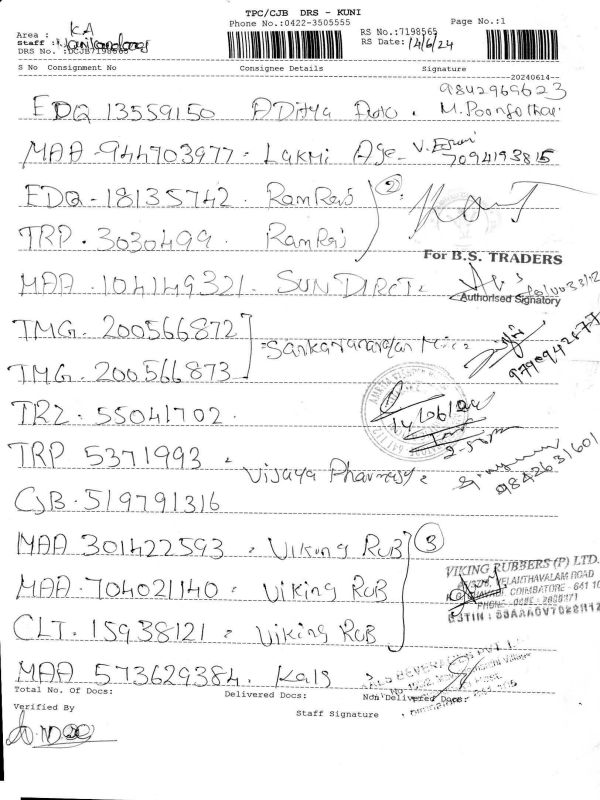 TPC/CJB DRS - KUNI
Phone No.:0422-3505555
Page No.:1
Area : KA
RS No.:7198565
Staff : Manikandan
RS Date: 14/6/24
DRS No. :DCJB7198565
S No Consignment No Consignee Details Signature
20240614
9842969623
EDQ 13559150 ADitya Auto . M. Poongothai
MAA - 944703977 - Lakmi Age - V.
7094193815
EDQ - 18135742 . RamRaj
TRP . 3030499 . RamRaj
2
For B.S. TRADERS
MAA . 104149321 - SUN DIRECT -
Authorised Signatory
TMG . 200566872
Sankaranarayan
TMG . 200566873
9790942677
TRZ - 55041702 .
14/06/24
TRP 5371993 - Vijaya Pharmacy -
9842631601
CJB - 519791316
MAA 301422593 - Viking RUB
3
VIKING RUBBERS (P) LTD.
VELANTHAVALAM ROAD
COIMBATORE - 641 10
MAA - 704021140 - Viking RUB
CLT - 15938121 - Viking RUB
MAA 573629384 . Kals
Total No. Of Docs: Delivered Docs: Non Delivered Docs:
Verified By
Staff Signature